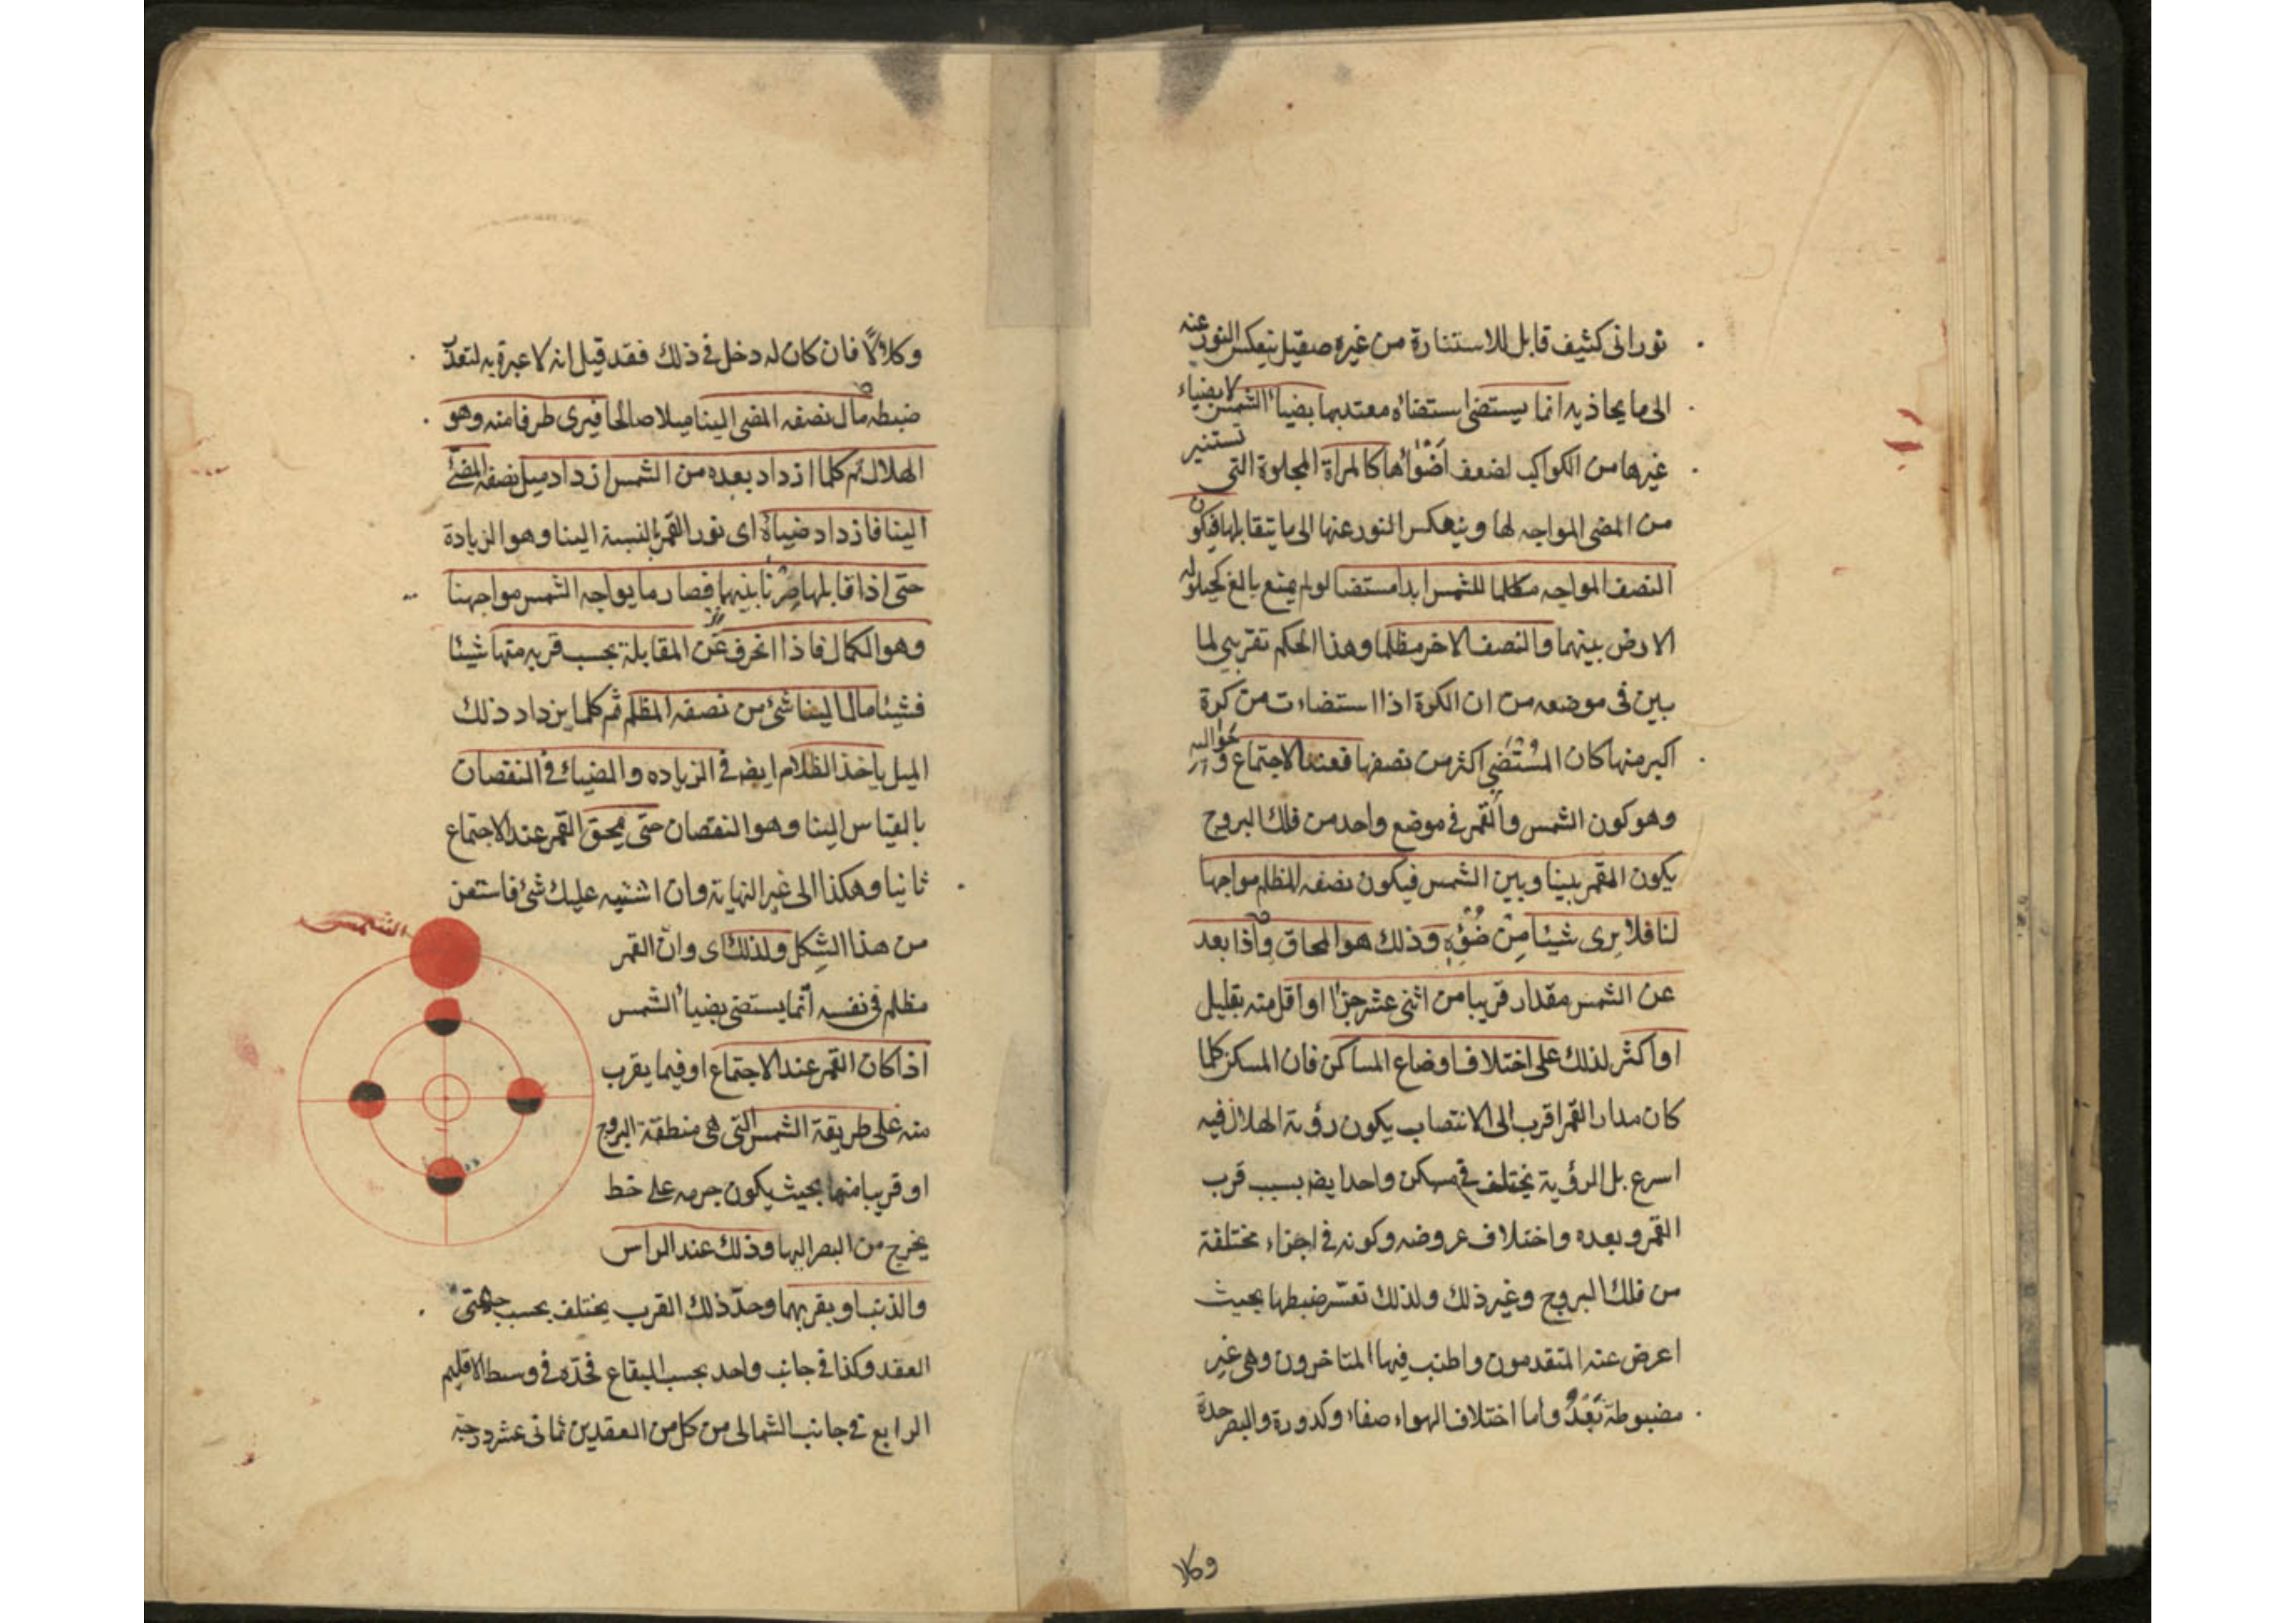 نورانى كثيف قابل للاستنارة من غيره صقيل ينعكس النور عنه
الى ما يحاذيه انما يستضئ استضاءة معتدبها بضياء الشمس لا بضياء
غيرها من الكواكب لضعف اضوائها كالمراة المجلوة التى تستنير
من المضئ المواجه لها وينعكس النور عنها الى ما يتقابلها فيكون
النصف المواجه للشمس ابدا مستضيئا لو لم يمنع مانع كحيلولة
الارض بينهما والنصف الاخر مظلما وهذا الحكم تقريبى لما
بين فى موضعه من ان الكرة اذا استضاءت من كرة
اكبر منها كان المستضئ اكثر من نصفها فعند الاجتماع وحواليه
وهو كون الشمس والقمر فى موضع واحد من فلك البروج
يكون القمر بيننا وبين الشمس فيكون نصفه المظلم مواجها
لنا فلا يرى شيئا من ضوئه وذلك هو المحاق واذا بعد
عن الشمس مقدار قريبا من اثنى عشر جزءا او اقل منه بقليل
او اكثر لذلك على اختلاف اوضاع المساكن فان المسكن كلما
كان مدار القمر اقرب الى الانتصاب يكون رؤية الهلال فيه
اسرع بل الرؤية يختلف فى مسكن واحد ايضه بسبب قرب
القمر وبعده واختلاف عروضه وكونه فى اجزاء مختلفة
من فلك البروج وغير ذلك ولذلك تعسر ضبطها بحيث
اعرض عنه المتقدمون واطنب فيها المتاخرون وهى غير
مضبوطة بعد واما اختلاف الهواء صفاء وكدورة والبصر حدة
وكلا
وكلالا فان كان له دخل فى ذلك فقد قيل انه لا عبرة به لتعذر
ضبطه مال نصفه المضئ الينا ميلا صالحا فيرى طرفا منه وهو
الهلال ثم كلما ازداد بعده من الشمس ازداد ميل نصفه المضئ
الينا فازداد ضياؤه اى نور القمر بالنسبة الينا وهو الزيادة
حتى اذا قابلها صرنا بينهما فصار ما يواجه الشمس مواجهنا
وهو الكمال فاذا انحرف عن المقابلة بحسب قربه منها شيئا
فشيئا مال الينا شئ من نصفه المظلم ثم كلما يزداد ذلك
الميل ياخذ الظلام ايضه فى الزياده والضياء فى النقصان
بالقياس الينا وهو النقصان حتى يمحق القمر عند الاجتماع
ثانيا وهكذا الى غير النهاية وان اشتبه عليك شئ فاستعن
من هذا الشكل ولذلك اى وان القمر
الشمس
مظلم فى نفسه انما يستضئ بضياء الشمس
اذا كان القمر عند الاجتماع او فيما يقرب
منه على طريقة الشمس التى هى منطقة البروج
او قريبا منها بحيث يكون جرمه على خط
يخرج من البصر اليها وذلك عند الراس
والذنب او بقربهما وحد ذلك القرب يختلف بحسب جهتى
العقد وكذا فى جانب واحد بحسب البقاع فحده فى وسط الاقليم
الرابع فى جانب الشمالى من كل من العقدين ثمانى عشر درجة